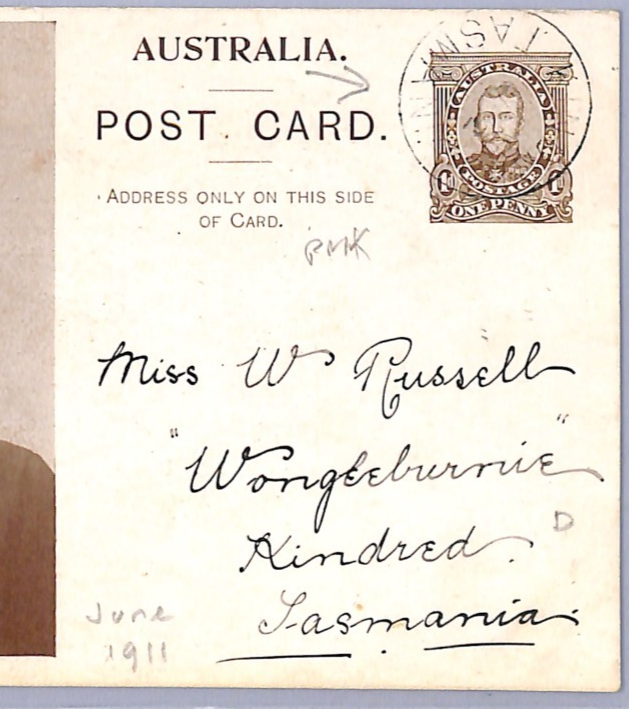 AUSTRALIA.
POST CARD.
ADDRESS ONLY ON THIS SIDE
OF CARD.
TASM
AUSTRALIA
POSTAGE
ONE PENNY
PMK
Miss W Russell
"Wongleburnie"
Kindred.
D
Tasmania.
June
1911